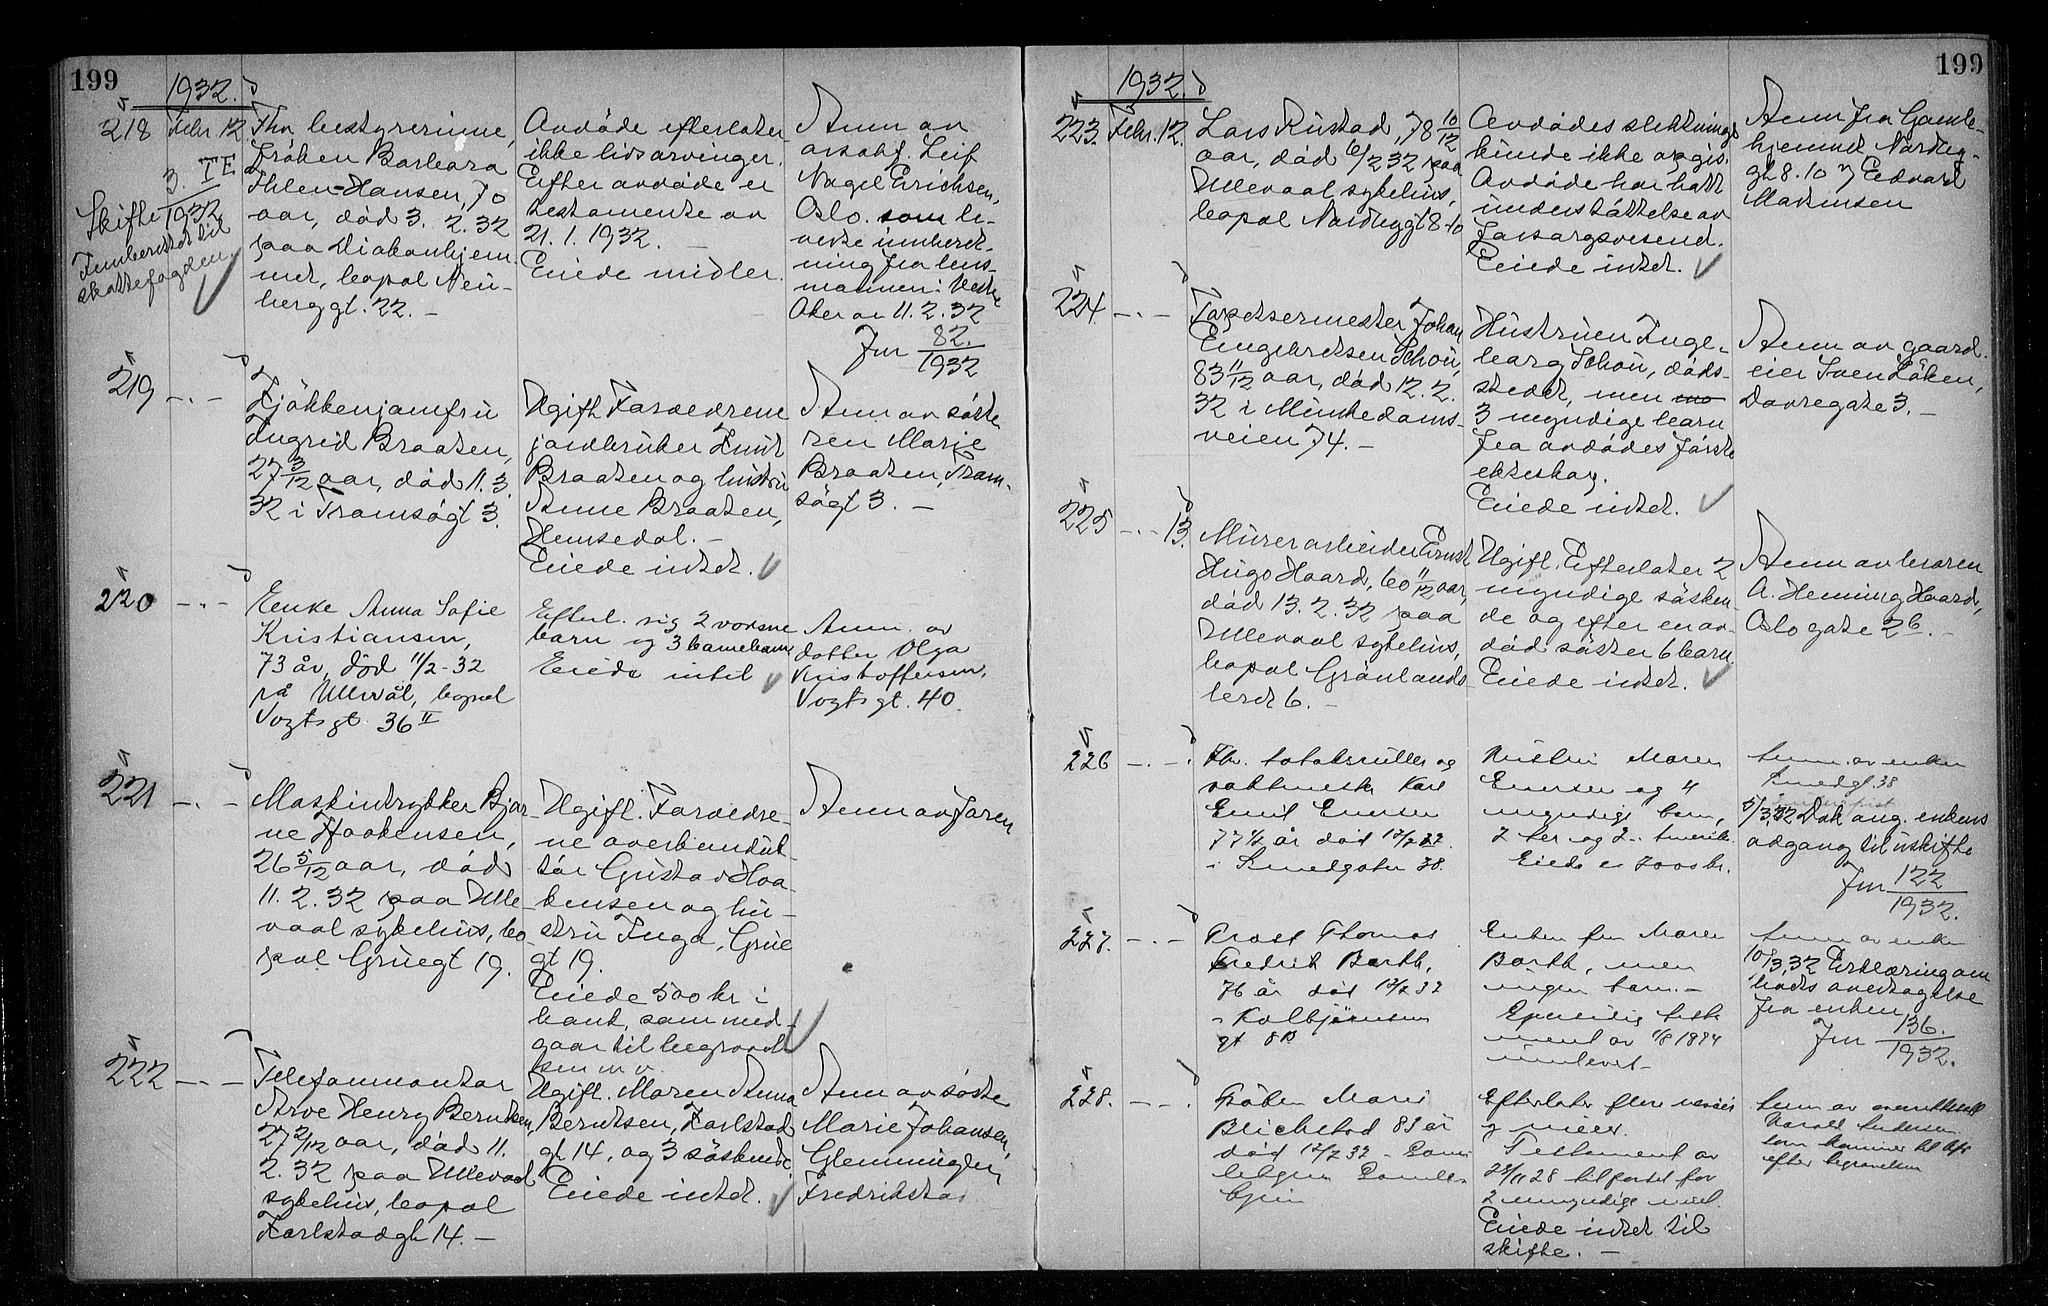 199
1932.
218 Febr. 12. Fhv. bestyrerinne,
Fröken Barbara
Ihlen-Hansen, 70
aar, död 3. 2. 32
paa Diakonhjem-
met, bopal Neu-
berggt. 22. -
3. TE
Skifte 1932
Innberettet til
skattefogden.
Avdöde efterlater
ikke livsarvinger.
Efter avdöde er
testamente av
21. 1. 1932. -
Eiede midler.
Anm av
o.r.sakf. Leif
Nagel Erichsen,
Oslo. som le-
verte innberet-
ning fra lens-
mannen i Vestre
Aker av 11. 2. 32
Jnr 82.
1932
219 -"- Kjökkenjomfru
Ingrid Braaten,
27 3/12 aar, död 11. 3.
32 i Tromsögt 3.
Ugift. Forældrene
jordbruker Knut
Braaten og hustru
Anne Braaten,
Hemsedal. -
Eiede intet.
Anm av söste
ren Marie
Braaten, Trom-
sögt 3. -
220 -"- Enke Anna Sofie
Kristiansen,
73 år, död 11/2-32
på Ullevål, bopal
Vogtsgt. 36 II
Efterl. sig 2 voksne
barn og 3 barnebarn
Eiede intet
Anm. av
dotter Olga
Kristoffersen,
Vogtsgt. 40.
221 -"- Maskintrykker Bjar-
ne Haakensen,
26 5/12 aar, död
11. 2. 32 paa Ulle-
vaal sykehus, bo
pal Grüegt 19.
Ugift. Forældre-
ne overkonduk-
tör Gustav Haa-
kensen og hu-
stru Inga, Grüe
gt 19.
Eiede 500 kr i
bank, som med-
gaar til begravel
sen m.v.
Anm av faren
222 -"- Telefonmontör
Arve Henry Berntsen,
27 2/12 aar, död 11.
2. 32 paa Ullevaal
sykehus, bopal
Karlstadgt 14. -
Ugift. Moren Anna
Berntsen, Karlstad
gt 14, og 3 söskende.
Eiede intet.
Anm av söster
Marie Johansen,
Glemmingen,
Fredrikstad
199
1932.
223. Febr. 12. Lars Rustad, 78 10/12
aar, död 6/2. 32 paa
Ullevaal sykehus,
bopal Nordbygt 8-10
Avdödes slektninger
kunde ikke opgis.
Avdöde har hatt
understöttelse av
forsorgsvesenet.
Eiede intet.
Anm fra Gamle-
hjemmet Nordby-
gt 8-10 v/ Edvard
Martinsen
224. -"- Tapetsermester Johan
Engebretsen Schou,
83 11/12 aar, död 12. 2.
32 i Munkedams-
veien 74. -
Hustruen Inge-
borg Schou, döds-
stedet, men
3 myndige barn
fra avdödes förste
ekteskap.
Eiede intet.
Anm av gaard-
eier Sven Löken,
Dovregate 3. -
225 -"- 13. Murerarbeider Ernst
Hugo Haard, 60 11/12 aar,
död 13. 2. 32 paa
Ullevaal sykehus,
bopal Grönlands-
leret 6. -
Ugift. Efterlater 2
myndige sösken-
de og efter en av-
död söster 6 barn.
Eiede intet.
Anm av broren
A. Henning Haard,
Oslo gate 26. -
226 -"- Fhv. og
vaktmester Karl
Emil Enersen
77 1/2 år död 12/2 32
i Smedgaten 38.
Hustru Maren
Enersen og 4
myndige barn,
2 her og 2 i Amerika
Eiede ca 7000 kr.
Anm. av enken
Smedgt 38
5/3.32 Dok ang. enkens
adgang til uskifte
Jnr 122
1932.
227. -"- Prost Thomas
Fredrik Barth,
76 år död 12/2 32
i Kolbjörnsens
gt 8 B
Enken fru Maren
Barth, men
ingen barn. -
Gjensidig testa
ment av 1/8 1894
Anm av enken
10/3.32 Erklæring om
boets overtagelse
fra enken
Jnr 136.
1932.
228. -"- Fröken Marie
Blichstad 89 år
död 12/2 32
Efterlater flere nevöer
og niecer.
Testament av
23/11 28 til fordel for
2 umyndige
Eiede intet til
skifte. -
Anm av
Harald Andersen
som kommer til
efter begravelsen